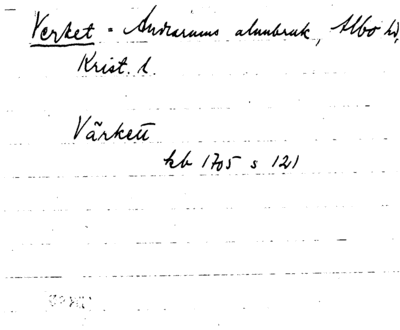 Verket = Andrarums alunbruk, Albo hd,
Krist. l.
Värkett
kb 1705 s 121